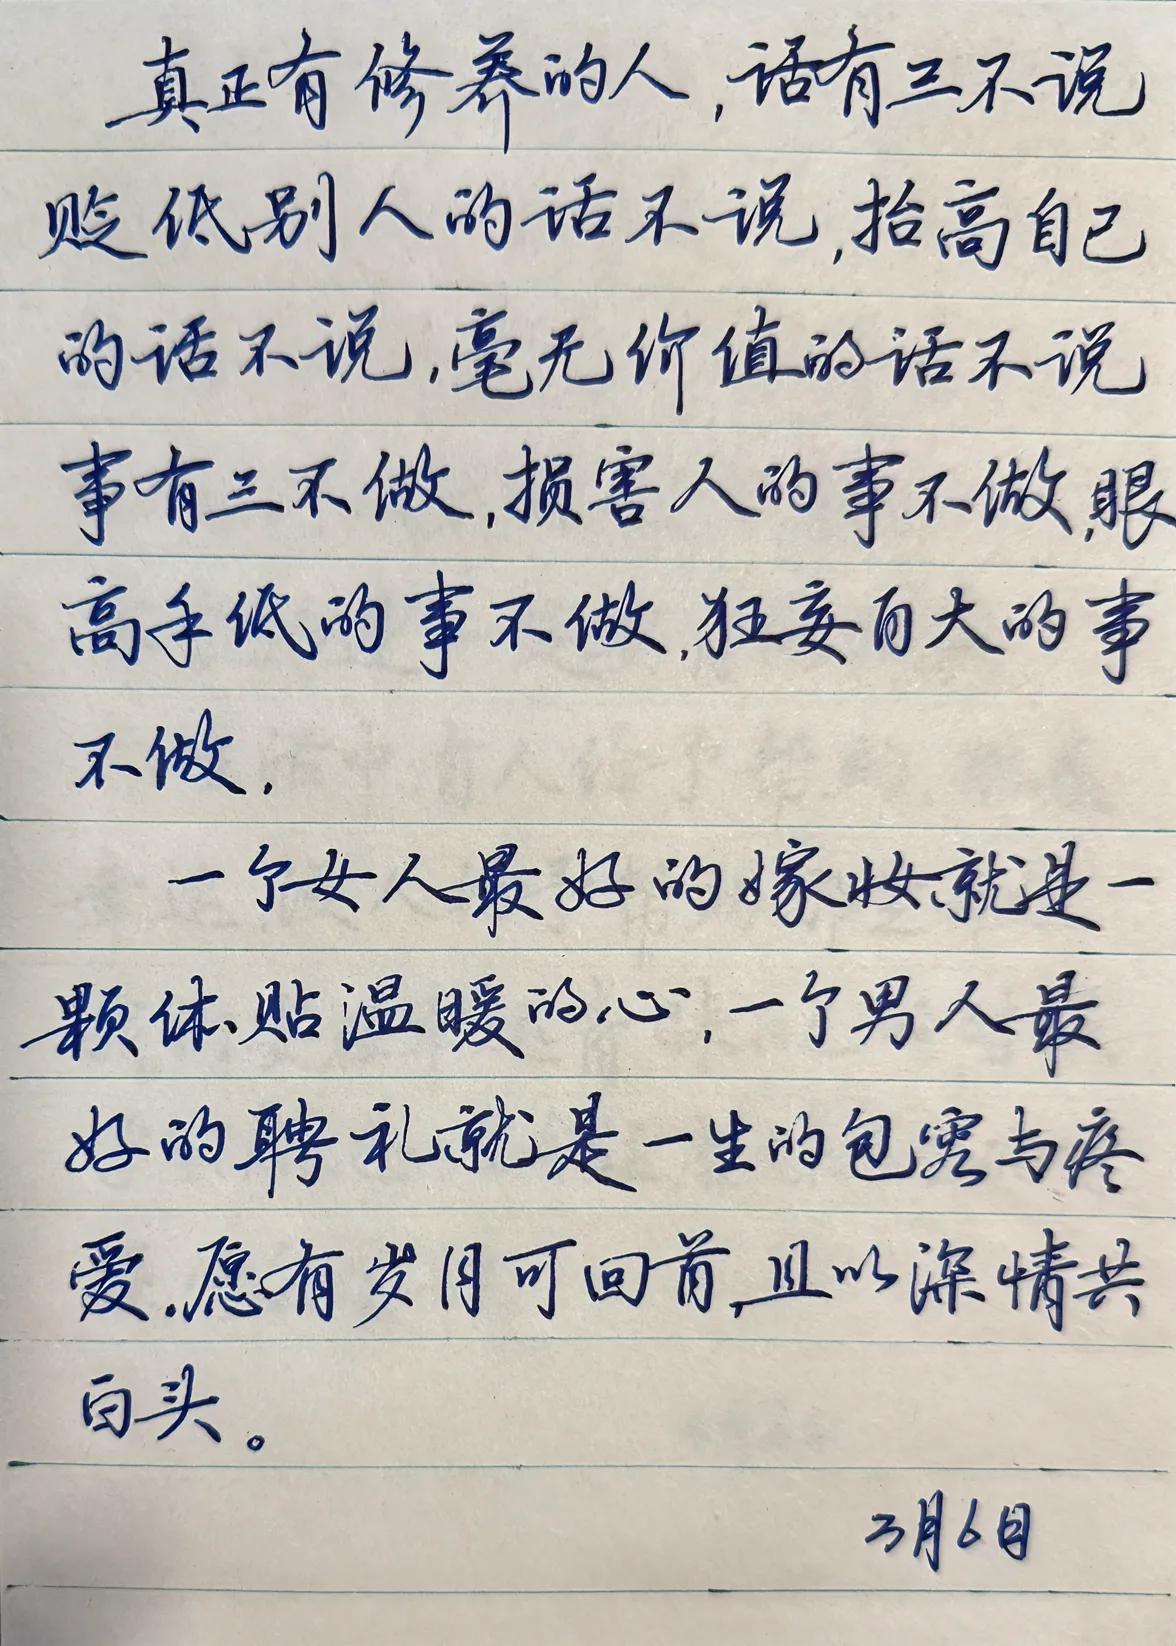 真正有修养的人,话有三不说
贬低别人的话不说,抬高自己
的话不说,毫无价值的话不说
事有三不做,损害人的事不做,眼
高手低的事不做,狂妄自大的事
不做.
一个女人最好的嫁妆就是一
颗体贴温暖的心,一个男人最
好的聘礼就是一生的包容与疼
爱.愿有岁月可回首,且以深情共
白头。
3月6日